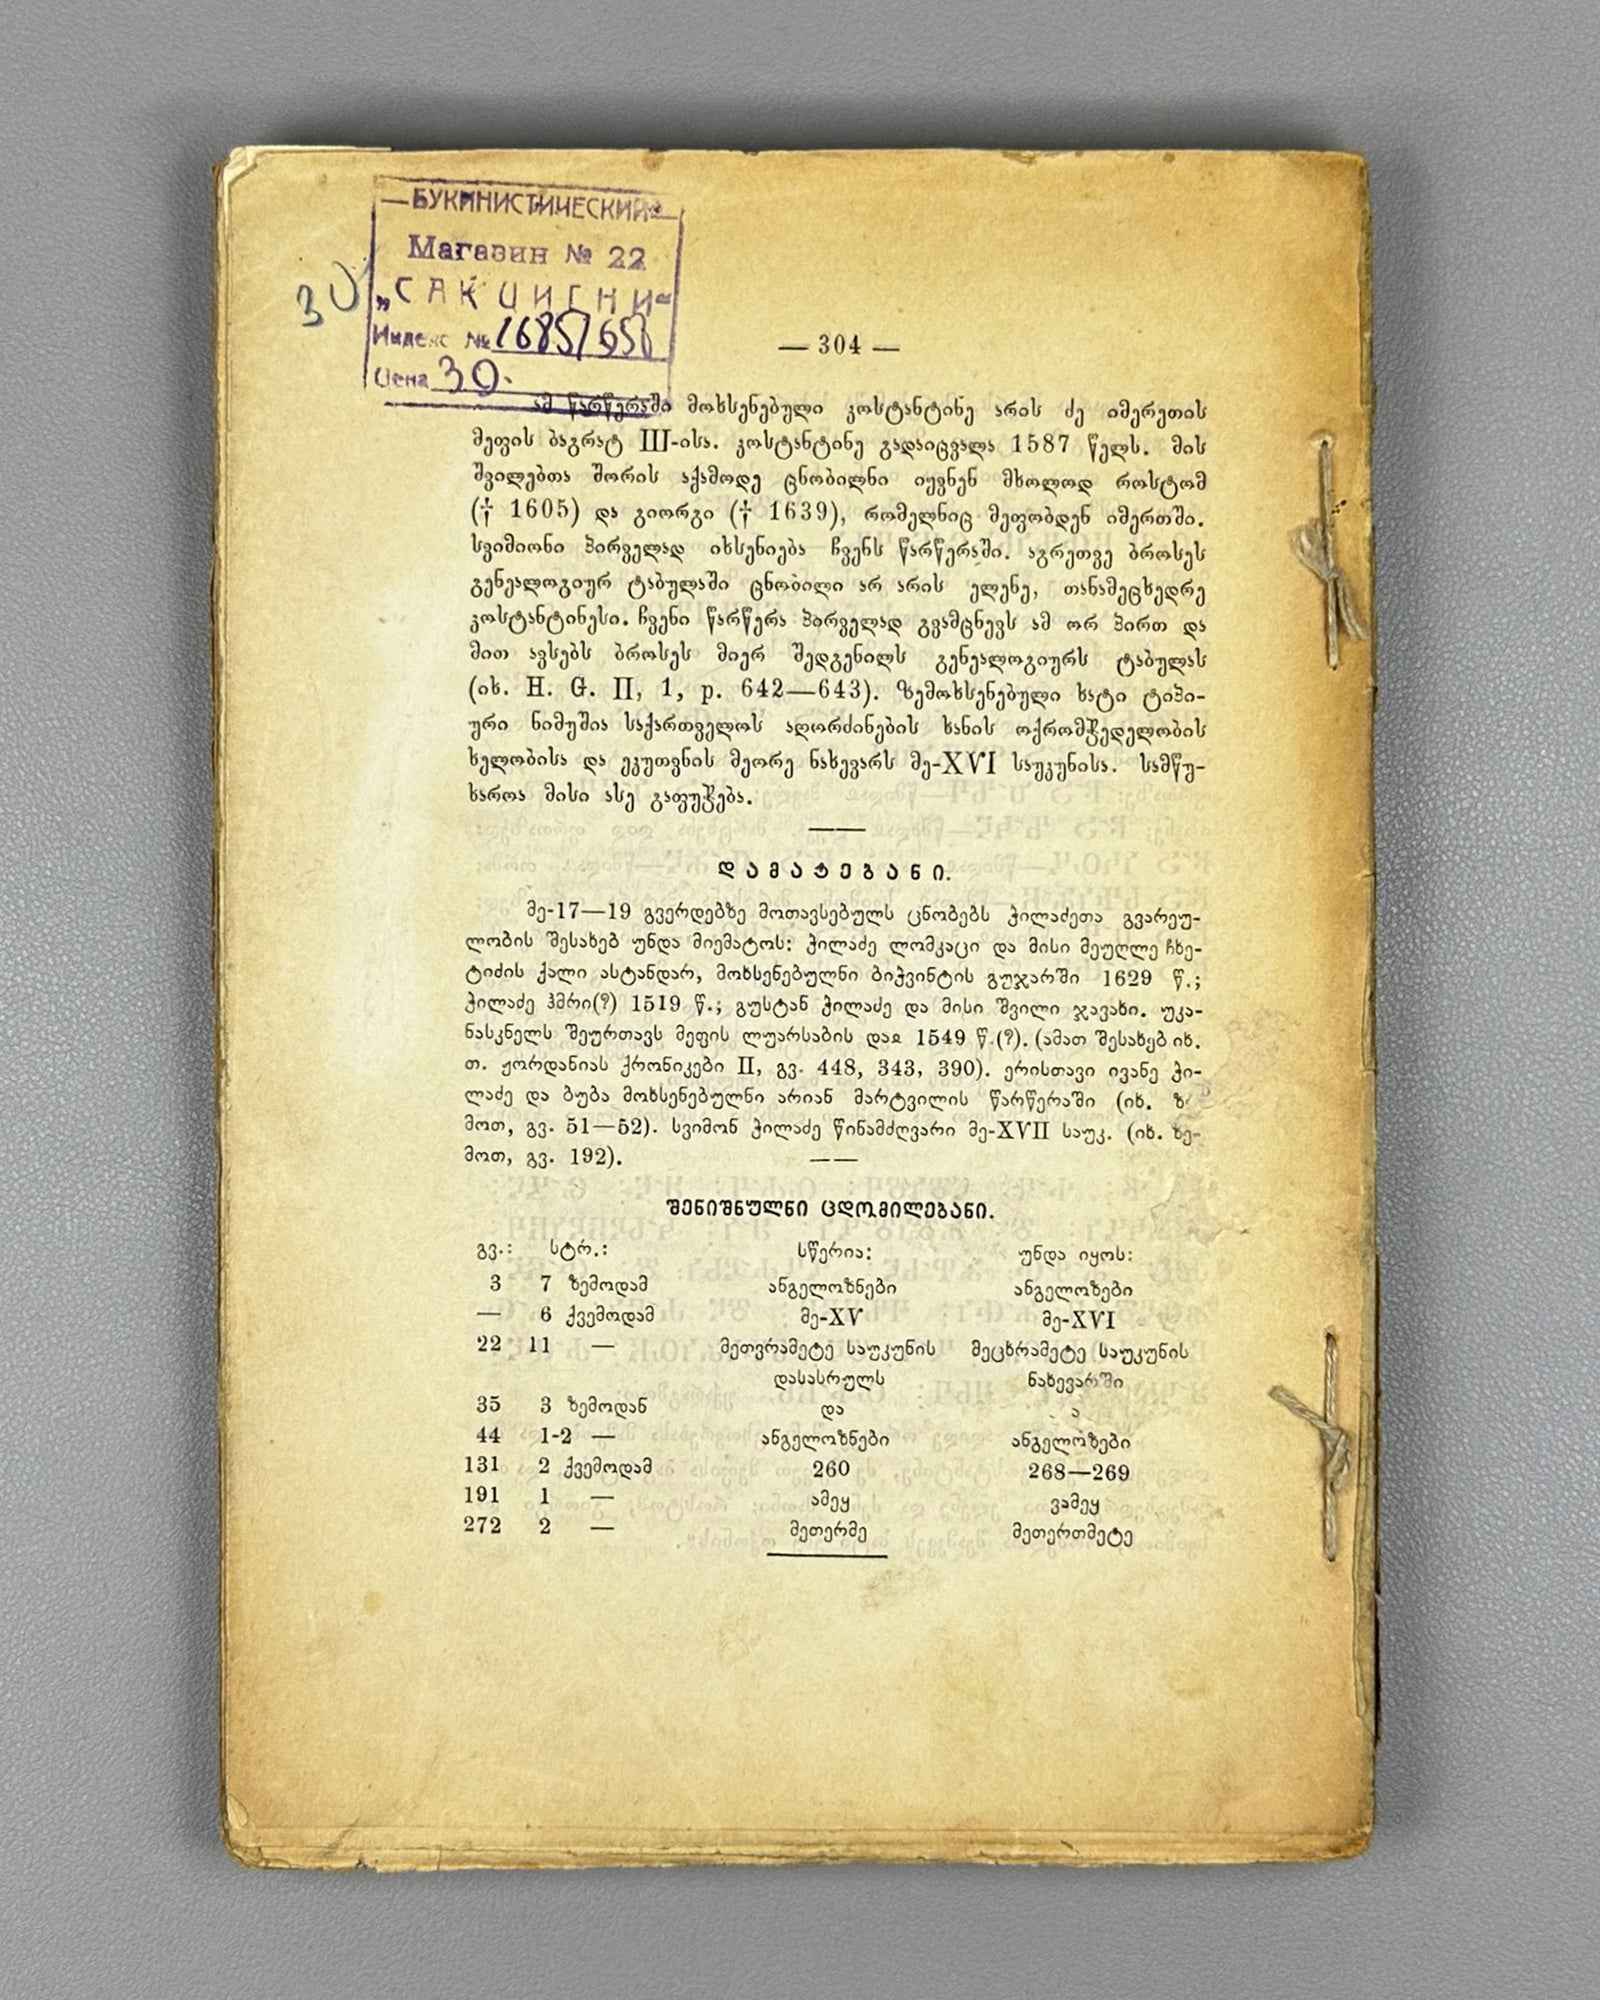 — БУКИНИСТИЧЕСКИЙ —
Магазин № 22
„САКЦИГНИ“
Индекс № 1685/656
Цена 30.
30
— 304 —
ამ წარწერაში მოხსენებული კოსტანტინე არის ძე იმერეთის
მეფის ბაგრატ III-ისა. კოსტანტინე გადაიცვალა 1587 წელს. მის
შვილებთა შორის აქამოდე ცნობილნი იყვნენ მხოლოდ როსტომ
(† 1605) და გიორგი († 1639), რომელნიც მეფობდენ იმერთში.
სვიმიონი პირველად იხსენიება ჩვენს წარწერაში. აგრეთვე ბროსეს
გენეალოგიურ ტაბულაში ცნობილი არ არის ელენე, თანამეცხედრე
კოსტანტინესი. ჩვენი წარწერა პირველად გვამცნევს ამ ორ პირთ და
მით ავსებს ბროსეს მიერ შედგენილს გენეალოგიურს ტაბულას
(იხ. H. G. II, 1, p. 642—643). ზემოხსენებული ხატი ტიპი-
ური ნიმუშია საქართველოს აღორძინების ხანის ოქრომჭედელობის
ხელობისა და ეკუთვნის მეორე ნახევარს მე-XVI საუკუნისა. სამწუ-
ხაროა მისი ასე გაფუჭება.
დამატებანი.
მე-17—19 გვერდებზე მოთავსებულს ცნობებს ჭილაძეთა გვარეუ-
ლობის შესახებ უნდა მიემატოს: ჭილაძე ლომკაცი და მისი მეუღლე ჩხე-
ტიძის ქალი ასტანდარ, მოხსენებულნი ბიჭვინტის გუჯარში 1629 წ.;
ჭილაძე ჰმრი(?) 1519 წ.; გუსტან ჭილაძე და მისი შვილი ჯავახი. უკა-
ნასკნელს შეურთავს მეფის ლუარსაბის დაჲ 1549 წ.(?). (ამათ შესახებ იხ.
თ. ჟორდანიას ქრონიკები II, გვ. 448, 343, 390). ერისთავი ივანე ჭი-
ლაძე და ბუბა მოხსენებულნი არიან მარტვილის წარწერაში (იხ.
მოთ, გვ. 51—52). სვიმონ ჭილაძე წინამძღვარი მე-XVII საუკ. (იხ. ზე-
მოთ, გვ. 192).
შენიშნულნი ცდომილებანი.
გვ.: სტრ.: სწერია: უნდა იყოს:
3 7 ზემოდამ ანგელოზნები ანგელოზები
— 6 ქვემოდამ მე-XV მე-XVI
22 11 — მეთვრამეტე საუკუნის მეცხრამეტე საუკუნის
დასასრულს ნახევარში
35 3 ზემოდან და ა
44 1-2 — ანგელოზნები ანგელოზები
131 2 ქვემოდამ 260 268—269
191 1 — ამეყ ვამეყ
272 2 — მეთერმე მეთერთმეტე